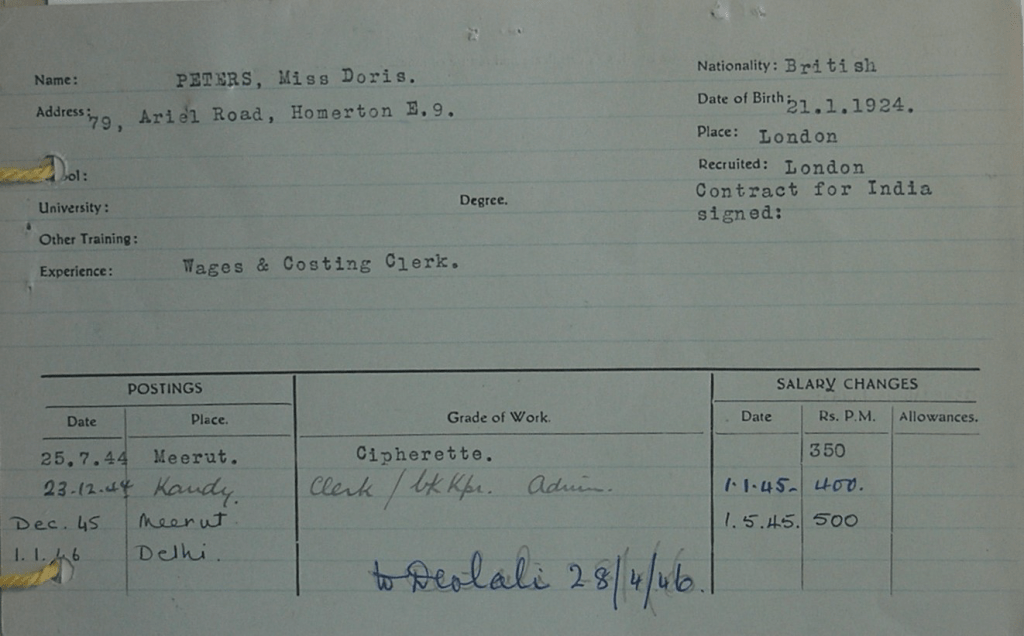 Name: PETERS, Miss Doris.
Nationality: British
Address: 79, Ariel Road, Homerton E.9.
Date of Birth: 21.1.1924.
Place: London
ool:
Recruited: London
University: Degree.
Contract for India
signed:
Other Training:
Experience: Wages & Costing Clerk.
POSTINGS SALARY CHANGES
Date Place. Grade of Work. Date Rs. P.M. Allowances.
25.7.44 Meerut. Cipherette. 350
23.12.44 Kandy. Clerk / bk Kpr. Admin. 1.1.45- 400.
Dec. 45 Meerut. 1.5.45. 500
1.1.46 Delhi.
to Deolali 28/4/46.